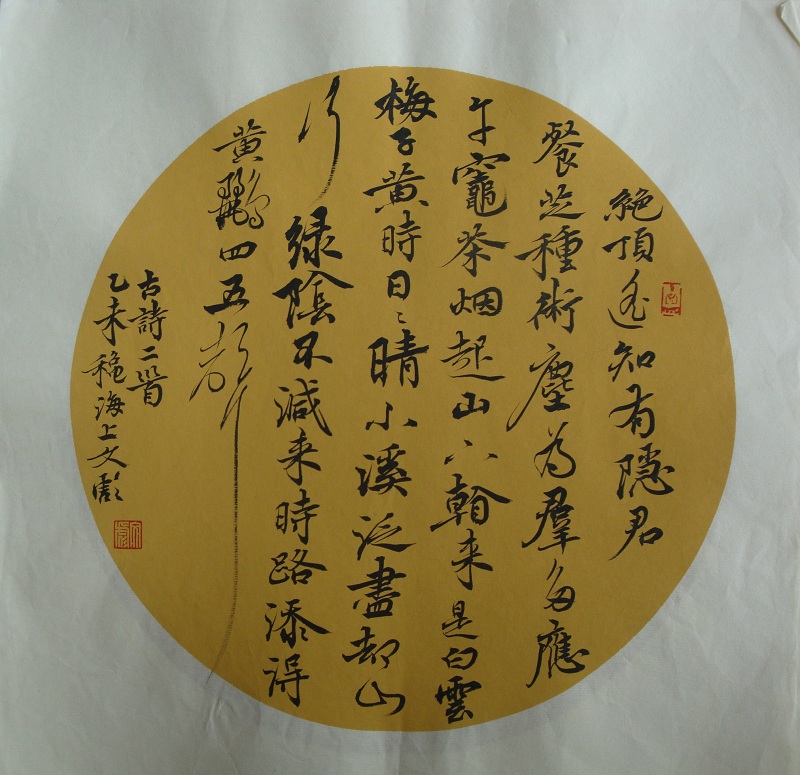 絶頂遥知有隱君
餐芝種術麈為羣多應
午竈茶烟起山下看来是白雲
梅子黄時日々晴小溪泛盡却山
行緑陰不減来時路添得
黄鸝四五聲
古詩二首
乙未穐海上文彪